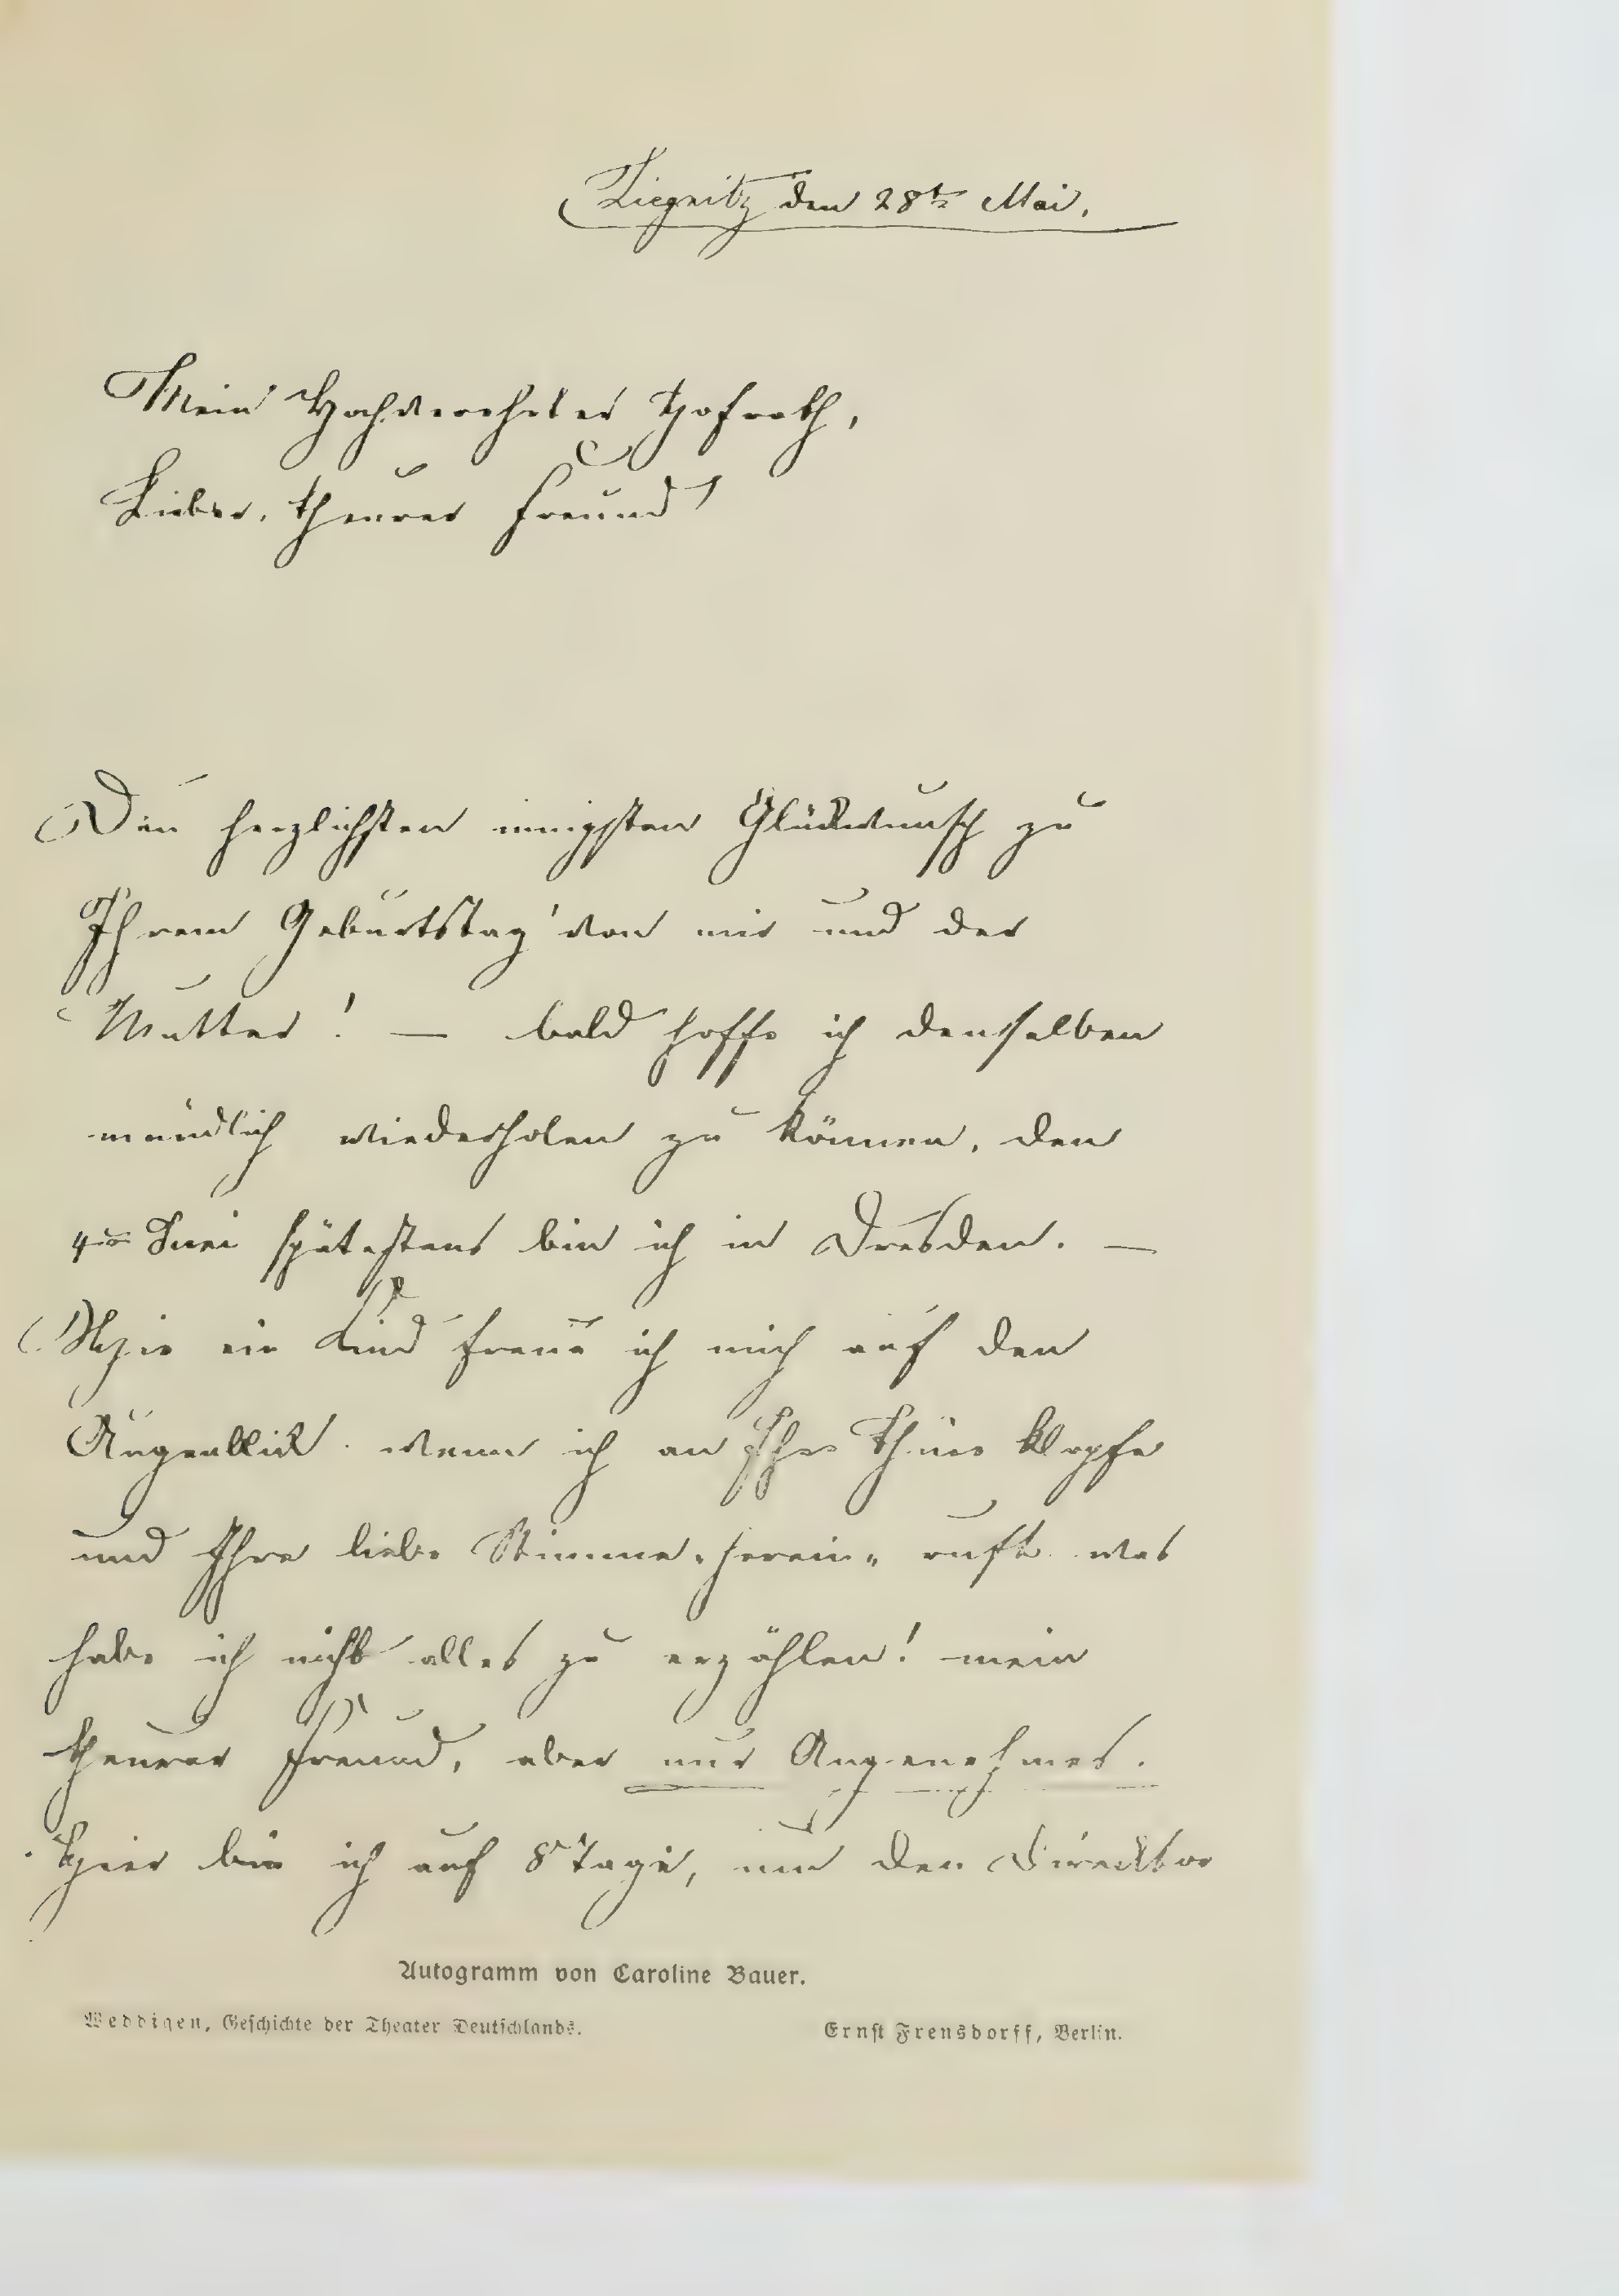 Liegnitz den 28ten Mai.
Mein Hochverehrter Hofrath,
Lieber, theurer Freund!
Den herzlichsten innigsten Glückwunsch zu
Ihrem Geburtstag von mir und der
Mutter! — bald hoffe ich denselben
mündlich wiederholen zu können, den
4ten Juni spätestens bin ich in Dresden. —
Wie ein Kind freue ich mich auf den
Augenblick wenn ich an Ihre Thüre klopfe
und Ihre liebe Stimme „herein" ruft. was
habe ich nicht alles zu erzählen! mein
theurer Freund, aber nur Angenehmes.
Hier bin ich auf 8 Tage, um den Direcktor
Autogramm von Caroline Bauer.
Weddigen, Geschichte der Theater Deutschlands.
Ernst Frensdorff, Berlin.